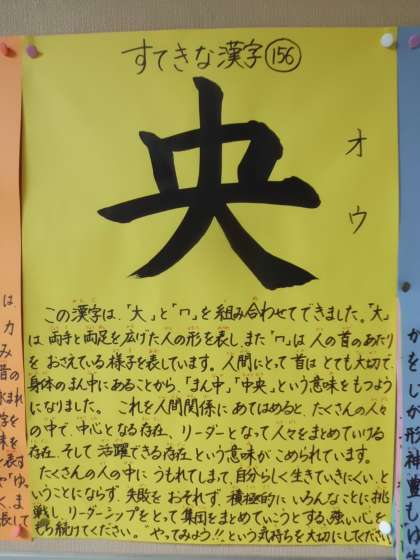 すてきな漢字156
央
オウ
この漢字は、「大」と「冂」を組み合わせてできました。「大」
は両手と両足を広げた人の形を表し、また「冂」は人の首のあたり
をおさえている様子を表しています。人間にとって首はとても大切で、
身体のまん中にあることから、「まん中」「中央」という意味をもつように
なりました。これを人間関係にあてはめると、たくさんの人々
の中で、中心となる存在、リーダーとなって人々をまとめていける
存在、そして活躍できる存在という意味がこめられています。
たくさんの人の中にうもれてしまって、自分らしく生きていきにくい、と
いうことにならず、失敗をおそれず、積極的にいろんなことに挑
戦し、リーダーシップをとって集団をまとめていこうとする、強い心を
もち続けてください。“やってみよう!!”という気持ちを大切にしてください